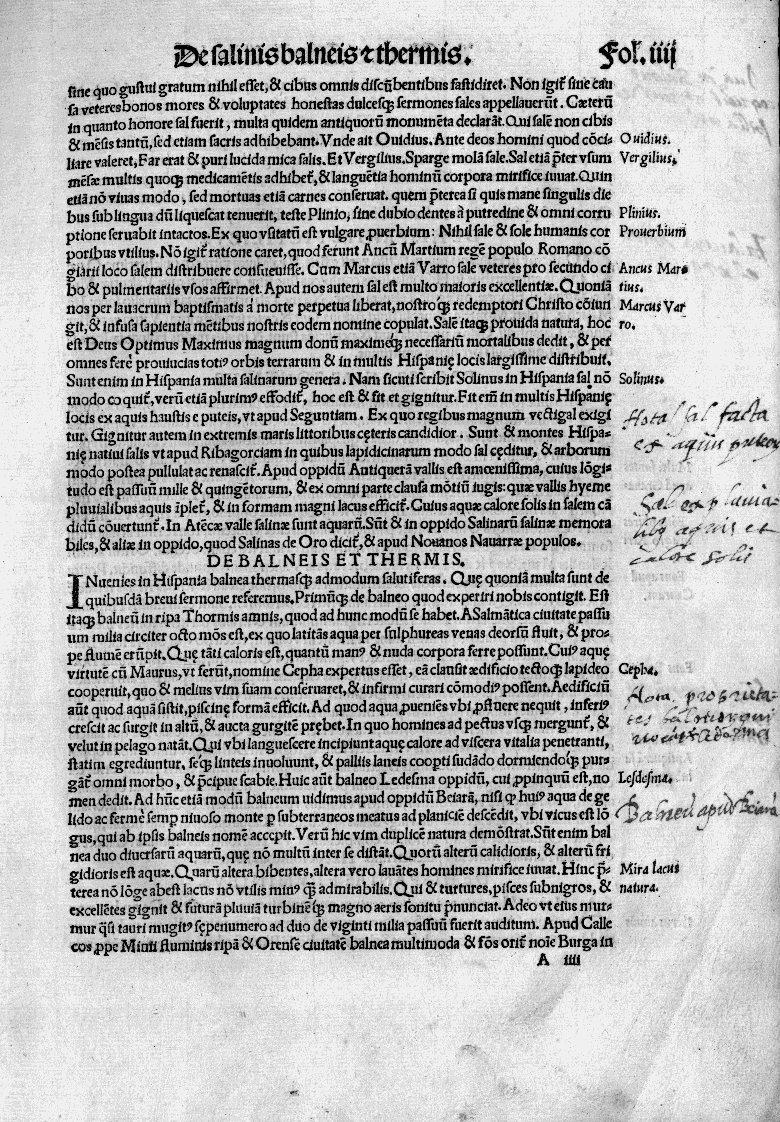 De salinis balneis ⁊ thermis.
Fol. iiij
sine quo gustui gratum nihil esset, & cibus omnis discũbentibus fastidiret. Non igit᷑ sine cau
sa veteres bonos mores & voluptates honestas dulcesq́ꝫ sermones sales appellauerũt. Cæterũ
in quanto honore sal fuerit, multa quidem antiquorũ monumẽta declarãt. Qui salẽ non cibis
& mẽsis tantũ, sed etiam sacris adhibebant. Vnde ait Ouidius. Ante deos homini quod cõci-
Ouidius.
liare valeret, Far erat & puri lucida mica salis. Et Vergilius. Sparge molã sale. Sal etiã p̃ter vsum
Vergilius.
mẽsæ multis quoqꝫ medicamẽtis adhibet᷑, & languẽtia hominũ corpora mirifice iuuat. Quin
etiã nõ viuas modo, sed mortuas etiã carnes conseruat. quem p̃terea si quis mane singulis die
bus sub lingua dũ liquescat tenuerit, teste Plinio, sine dubio dentes à putredine & omni corru
Plinius.
ptione seruabit intactos. Ex quo vsitatũ est vulgare ꝓuerbium: Nihil sale & sole humanis cor
Prouerbium
poribus vtilius. Nõ igit᷑ ratione caret, quod ferunt Ancũ Martium regẽ populo Romano cõ
giarii loco salem distribuere consueuisse. Cum Marcus etiã Varro sale veteres pro secundo ci
Ancus Mar
bo & pulmentariis vsos affirmet. Apud nos autem sal est multo maioris excellentiæ. Quoniã
tius.
nos per lauacrum baptismatis à morte perpetua liberat, nostroq́ꝫ redemptori Christo cõiun
Marcus Var
git, & infusa sapientia mẽtibus nostris eodem nomine copulat. Salẽ itaqꝫ prouida natura, hoc
ro.
est Deus Optimus Maximus magnum donũ maximeq́ꝫ necessariũ mortalibus dedit, & per
omnes ferè prouiucias totiꝰ orbis terrarum & in multis Hispanię locis largissime distribuit.
Sunt enim in Hispania multa salinarum genera. Nam sicuti scribit Solinus in Hispania sal nõ
Solinus.
modo coquit᷑, verũ etiã plurimꝰ effodit᷑, hoc est & sit et gignitur. Fit em̃ in multis Hispanię
locis ex aquis haustis e puteis, vt apud Seguntiam. Ex quo regibus magnum vectigal exigi
Nota sal facta
tur. Gignitur autem in extremis maris littoribus cęteris candidior. Sunt & montes Hispa-
ex aquis
nię natiui salis vt apud Ribagorciam in quibus lapidicinarum modo sal cęditur, & arborum
modo postea pullulat ac renascit᷑. Apud oppidũ Antiquerã vallis est amœnissima, cuius lõgi-
tudo est passuũ mille & quingẽtorum, & ex omni parte clausa mõtiũ iugis: quæ vallis hyeme
Sal ex pluuia
pluuialibus aquis ĩplet᷑, & in formam magni lacus efficit᷑. Cuius aquæ calore solis in salem cã
libꝫ aquis et
didũ cõuertunt᷑. In Atẽcæ valle salinæ sunt aquarũ. Sũt & in oppido Salinarũ salinæ memora
calore solis
biles, & aliæ in oppido, quod Salinas de Oro dicit᷑, & apud Nouanos Nauarræ populos.
DE BALNEIS ET THERMIS.
INuenies in Hispania balnea thermasq́ꝫ admodum salutiferas. Quę quoniã multa sunt de
quibusdã breui sermone referemus. Primũq́ꝫ de balneo quod experiri nobis contigit. Est
itaqꝫ balneũ in ripa Thormis amnis, quod ad hunc modũ se habet. A Salmãtica ciuitate passu
um milia circiter octo mõs est, ex quo latitãs aqua per sulphureas venas deorsũ fluit, & pro-
pe flumẽ erũpit. Quę tãti caloris est, quantũ manꝰ & nuda corpora ferre possunt. Cuiꝰ aquę
virtutẽ cũ Maurus, vt ferũt, nomine Cepha expertus esset, eã clausit ædificio tectoqꝫ lapideo
Cepha.
cooperuit, quo & melius vim suam conseruaret, & infirmi curari cõmodiꝰ possent. Aedificiũ
aũt quod aquã sistit, piscinę formã efficit. Ad quod aqua ꝓueniẽs vbi p̃stuere nequit, inferiꝰ
Nota proprieta-
crescit ac surgit in altũ, & aucta gurgitẽ prębet. In quo homines ad pectus vsqꝫ mergunt᷑, &
velut in pelago natãt. Qui vbi languescere incipiunt aquę calore ad viscera vitalia penetranti,
statim egrediuntur, seq́ꝫ linteis inuoluunt, & palliis laneis coopti sudãdo dormiendoqꝫ pur-
gãt᷑ omni morbo, & p̃cipue scabie. Huic aũt balneo Ledesma oppidũ, cui ꝓpinquũ est, no
Ledesma.
men dedit. Ad hũc etiã modũ balneum uidimus apud oppidũ Beiarã, nisi ꝙ huiꝰ aqua de ge
Balneũ apud Beiarã
lido ac fermè semp niuoso monte ꝑ subterraneos meatus ad planiciẽ descẽdit, vbi vicus est lõ
gus, qui ab ipsis balneis nomẽ accepit. Verũ hic vim duplicẽ natura demõstrat. Sũt enim bal
nea duo diuersarũ aquarũ, quę nõ multũ inter se distãt. Quorũ alterũ calidioris, & alterũ fri
gidioris est aquæ. Quarũ altera bibentes, altera vero lauãtes homines mirifice iuuat. Hinc p̃-
Mira lacus
terea nõ lõge abest lacus nõ vtilis minꝰ q̃ꝫ admirabilis. Qui & turtures, pisces subnigros, &
natura.
excellẽtes gignit & futurã pluuiã turbinẽq́ꝫ magno aeris sonitu p̃nunciat. Adeo vt eius mur-
mur q̃si tauri mugitꝰ sępenumero ad duo de viginti milia passuũ fuerit auditum. Apud Calle
cos ꝓpe Minti fluminis ripã & Orensẽ ciuitatẽ balnea multimoda & fõs orit᷑ noĩe Burga in
A iiij